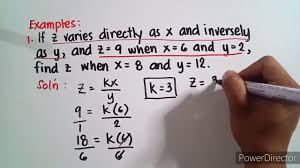 Examples:
1. If z varies directly as x and inversely
as y, and z = 9 when x = 6 and y = 2,
find z when x = 8 and y = 12.
Soln: z = kx/y k = 3 z = 3
9/1 = k(6)/2
18/6 = k(6)/6
PowerDirector